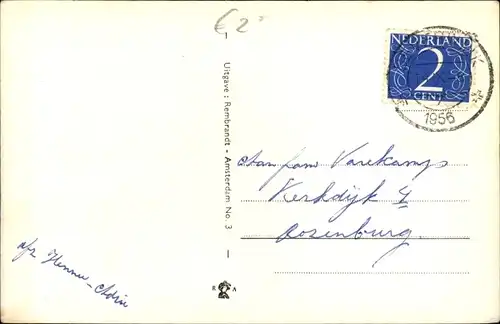 € 2
NEDERLAND
2
CENT
1956
Uitgave: Rembrandt - Amsterdam No. 3
Aan fam Varekamp
Kerkdijk 4
Rosenburg.
afz. Hennie - Adrie
R A